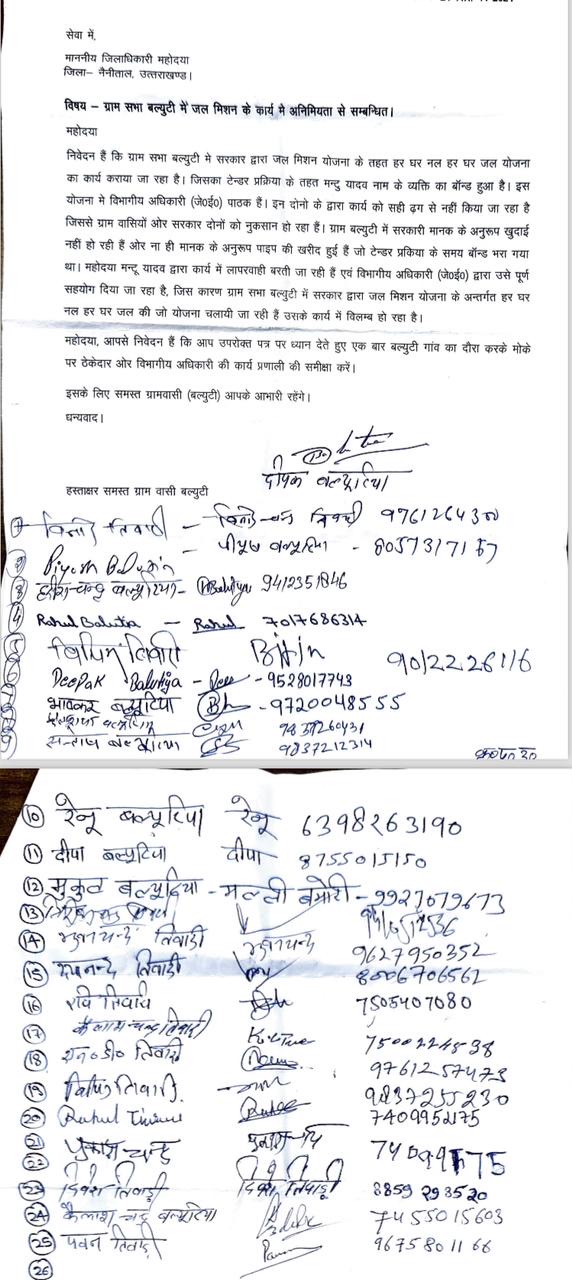 सेवा में,
माननीय जिलाधिकारी महोदया
जिला– नैनीताल, उत्तराखण्ड।
विषय – ग्राम सभा बल्युटी में जल मिशन के कार्य मे अनिमियता से सम्बन्धित।
महोदया
निवेदन हैं कि ग्राम सभा बल्युटी मे सरकार द्वारा जल मिशन योजना के तहत हर घर नल हर घर जल योजना
का कार्य कराया जा रहा है। जिसका टेन्डर प्रक्रिया के तहत मन्टु यादव नाम के व्यक्ति का बॉन्ड हुआ है। इस
योजना मे विभागीय अधिकारी (जे०ई०) पाठक हैं। इन दोनो के द्वारा कार्य को सही ढ़ग से नहीं किया जा रहा है
जिससे ग्राम वासियों ओर सरकार दोनों को नुकसान हो रहा हैं। ग्राम बल्युटी में सरकारी मानक के अनुरूप खुदाई
नहीं हो रही हैं ओर ना ही मानक के अनुरूप पाइप की खरीद हुई हैं जो टेन्डर प्रकिया के समय बॉन्ड भरा गया
था। महोदया मन्टू यादव द्वारा कार्य में लापरवाही बरती जा रही हैं एवं विभागीय अधिकारी (जे०ई०) द्वारा उसे पूर्ण
सहयोग दिया जा रहा है, जिस कारण ग्राम सभा बल्युटी में सरकार द्वारा जल मिशन योजना के अन्तर्गत हर घर
नल हर घर जल की जो योजना चलायी जा रही हैं उसके कार्य में विलम्ब हो रहा है।
महोदया, आपसे निवेदन हैं कि आप उपरोक्त पत्र पर ध्यान देते हुए एक बार बल्युटी गांव का दौरा करके मोके
पर ठेकेदार ओर विभागीय अधिकारी की कार्य प्रणाली की समीक्षा करें।
इसके लिए समस्त ग्रामवासी (बल्युटी) आपके आभारी रहेंगे।
धन्यवाद।
दीपक बल्यूटिया
हस्ताक्षर समस्त ग्राम वासी बल्युटी
तिवारी –
पीयूष बल्यूटिया - 8057317157
Piyush Balutia
3 हरीश चन्द्र बल्यूटिया - 9412351846
4 Rahul Balutia — Rahul 7017686314
5 विपिन तिवारी Bitin 9012226116
6 Deepak Balutiya - 9528017743
बल्यूटिया - 9720048555
9 बल्यूटिया 9837212314
10 रेनू बल्यूटिया रेनू 6398263190
11 दीपा बल्यूटिया दीपा 8755015150
12 मुकुल बल्यूटिया - मल्ली बमोरी - 9927079673
13
14 तिवाडी 9627950352
15 तिवाडी 8006706562
16 रवि तिवारी 7505407080
17 कैलाश चन्द्र तिवाडी
18 एन० डी० तिवाडी 9761257473
19 विपिन तिवारी. 9837255230
20 Rahul Tiwari 7409952175
21 प्रकाश चन्द्र
22
23 दिनेश तिवाडी दिनेश तिवाडी 8859293520
24 कैलाश चन्द्र बल्यूटिया 7455015603
25 पवन तिवाडी 9675801166
26